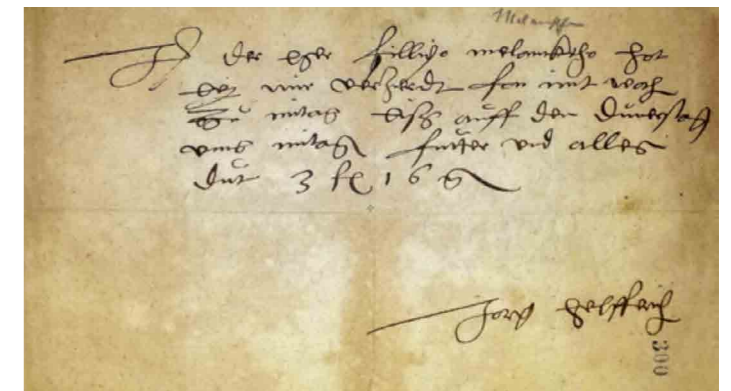 Melanchthon
It der her fillipo melanktho hat
bey mir verzerdt fon mit woch
zu mitag bisz auff den dunerstag
vms mitag futter vnd alles
dut 3 fl 16
Jorg helfferich
300